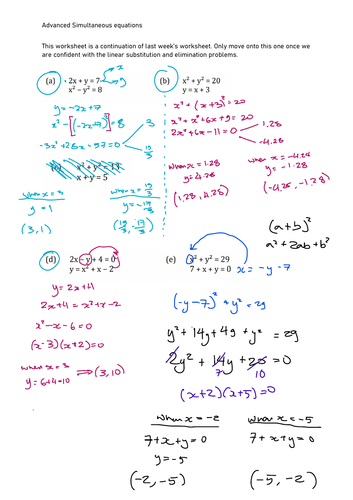 Advanced Simultaneous equations
This worksheet is a continuation of last week's worksheet. Only move onto this one once we
are confident with the linear substitution and elimination problems.
(a) 2x + y = 7
x² − y² = 8
→ x
→ y
y = -2x+7
x² - [(-2x+7)²] = 8
-3x² + 28x - 57 = 0
3
19/3
when x = 3
y = 1
(3, 1)
when x = 19/3
y = -17/3
(19/3, -17/3)
(b) x² + y² = 20
y = x + 3
x² + (x+3)² = 20
x² + x² + 6x + 9 = 20
2x² + 6x - 11 = 0
1.28
-4.28
when x = 1.28
y = 4.28
(1.28, 4.28)
when x = -4.28
y = -1.28
(-4.28, -1.28)
(c) x² + y² = 13
x + y = 5
(a+b)²
a² + 2ab + b²
(d) 2x − y + 4 = 0
y = x² + x − 2
y = 2x+4
2x+4 = x²+x-2
x² - x - 6 = 0
(x-3)(x+2) = 0
when x = 3
y = 6+4=10
⇒ (3, 10)
(e) x² + y² = 29
7 + x + y = 0
x = -y - 7
(-y-7)² + y² = 29
y² + 14y + 49 + y² = 29
2y² + 14y + 20 = 0
7
10
(x+2)(x+5) = 0
when x = -2
7+x+y = 0
y = -5
(-2, -5)
when x = -5
7+x+y = 0
(-5, -2)